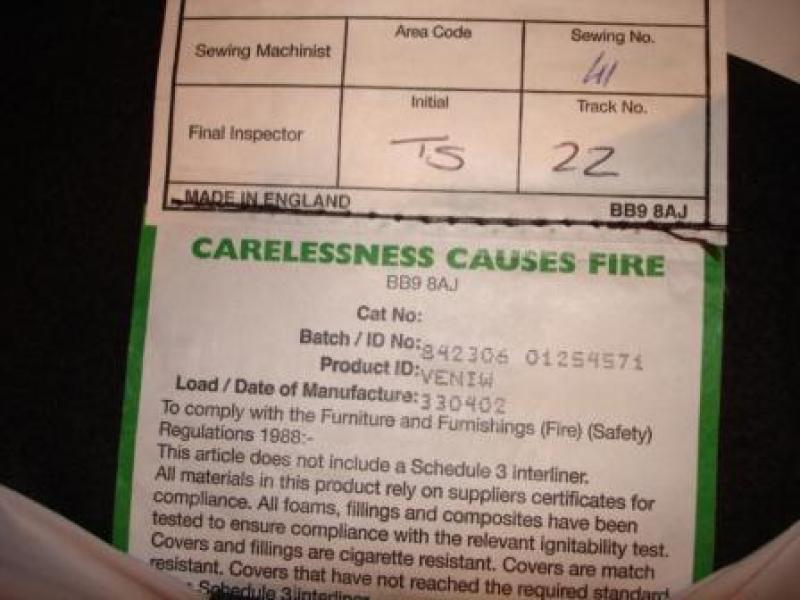 Area Code Sewing No.
Sewing Machinist 41
Initial Track No.
Final Inspector TS 22
MADE IN ENGLAND BB9 8AJ
CARELESSNESS CAUSES FIRE
BB9 8AJ
Cat No:
Batch / ID No: 842306 01254571
Product ID: VENIW
Load / Date of Manufacture: 330402
To comply with the Furniture and Furnishings (Fire) (Safety)
Regulations 1988:-
This article does not include a Schedule 3 interliner.
All materials in this product rely on suppliers certificates for
compliance. All foams, fillings and composites have been
tested to ensure compliance with the relevant ignitability test.
Covers and fillings are cigarette resistant. Covers are match
resistant. Covers that have not reached the required standard
Schedule 3 interliner